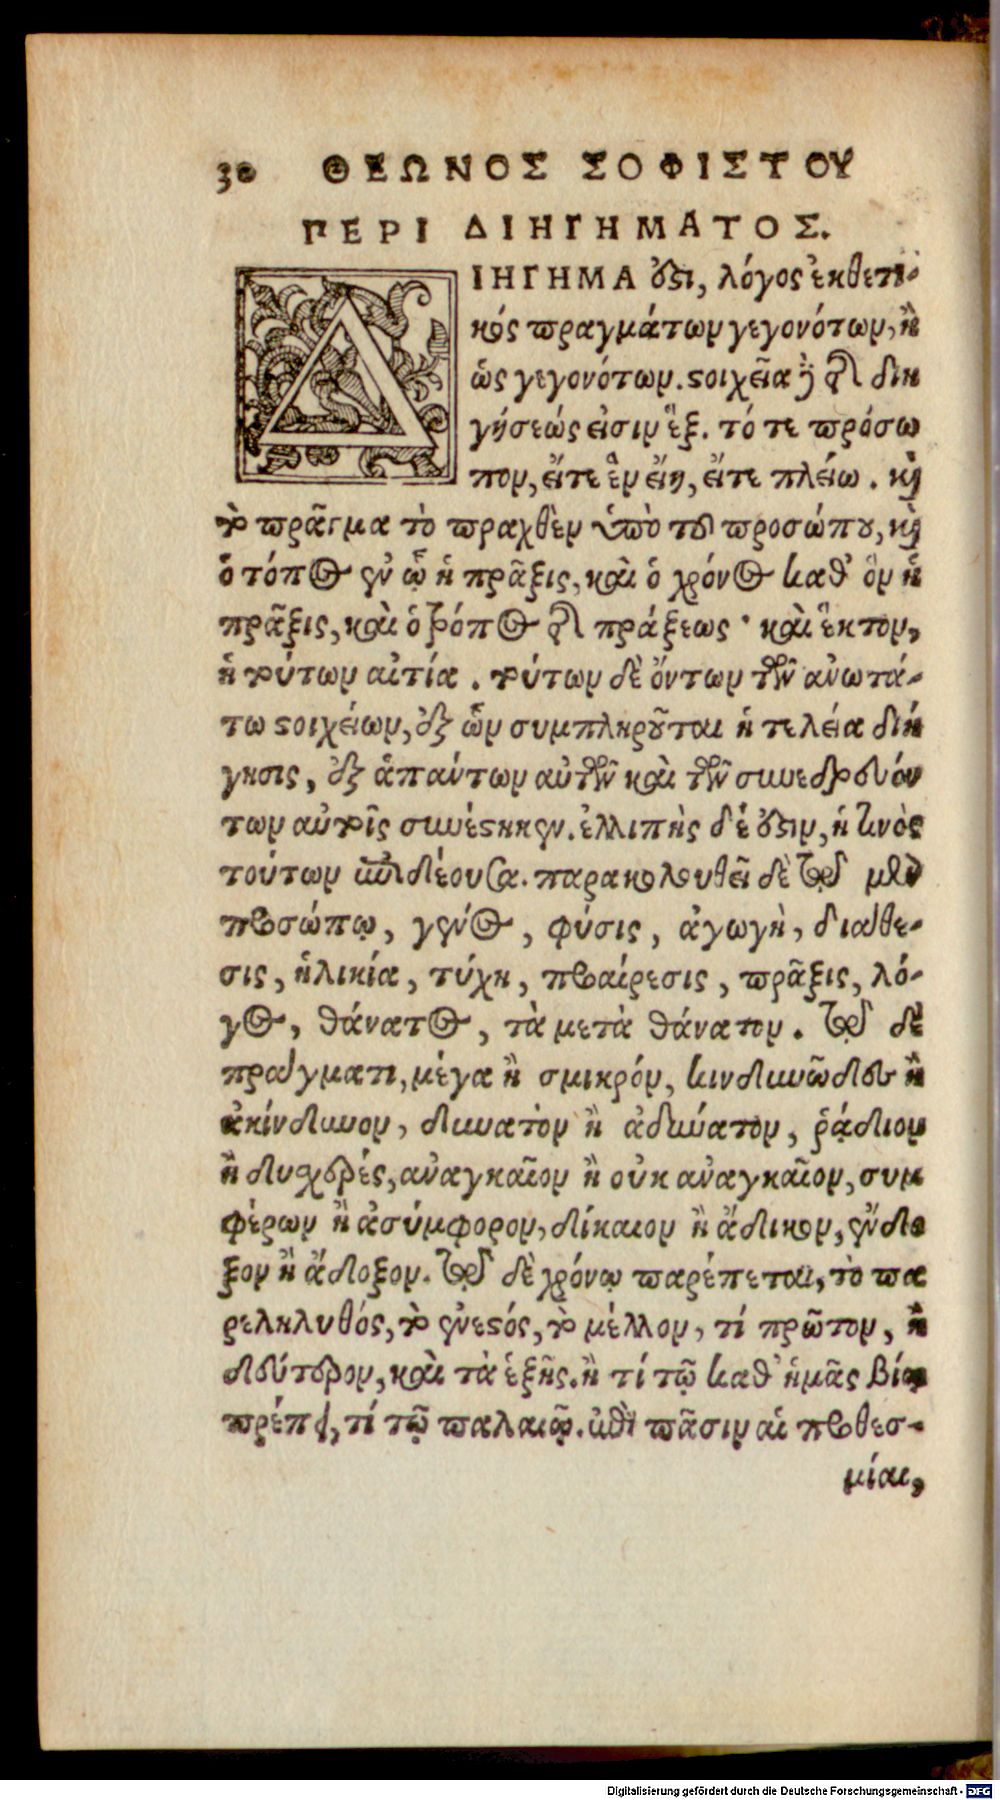 30 ΘΕΩΝΟΣ ΣΟΦΙΣΤΟΥ
ΠΕΡΙ ΔΙΗΓΗΜΑΤΟΣ.
ΔΙΗΓΗΜΑ ἐστι, λόγος ἐκθετι-
κός πραγμάτων γεγονότων, ἢ
ὡς γεγονότων. στοιχεῖα δὲ τῆς διη
γήσεώς εἰσιν ἕξ. τό τε πρόσω
πον, εἴτε ἓν εἴη, εἴτε πλείω. καὶ
τὸ πρᾶγμα τὸ πραχθὲν ὑπὸ τοῦ προσώπου, καὶ
ὁ τόπος ἐν ᾧ ἡ πρᾶξις, καὶ ὁ χρόνος καθ' ὃν ἡ
πρᾶξις, καὶ ὁ τρόπος τῆς πράξεως· καὶ ἕκτον,
ἡ τούτων αἰτία. τούτων δὲ ὄντων τῶν ἀνωτά-
τω στοιχείων, ἐξ ὧν συμπληροῦται ἡ τελεία διή
γησις, ἐξ ἁπάντων αὐτῶν καὶ τῶν συνεδρευόν
των αὐτοῖς συνέστηκεν. ἐλλιπὴς δέ ἐστιν, ἡ τινὸς
τούτων ἐπιδέουσα. παρακολουθεῖ δὲ τῷ μὲν
προσώπῳ, γένος, φύσις, ἀγωγὴ, διάθε-
σις, ἡλικία, τύχη, προαίρεσις, πρᾶξις, λό-
γος, θάνατος, τὰ μετὰ θάνατον. τῷ δὲ
πράγματι, μέγα ἢ σμικρόν, κινδυνῶδες ἢ
ἀκίνδυνον, δυνατὸν ἢ ἀδύνατον, ῥᾴδιον
ἢ δυσχερές, ἀναγκαῖον ἢ οὐκ ἀναγκαῖον, συμ
φέρων ἢ ἀσύμφορον, δίκαιον ἢ ἄδικον, ἔνδο
ξον ἢ ἄδοξον. τῷ δὲ χρόνῳ παρέπεται, τὸ πα
ρεληλυθός, τὸ ἐνεστός, τὸ μέλλον, τί πρῶτον, ἢ
δεύτερον, καὶ τὰ ἑξῆς. ἢ τί τῷ καθ' ἡμᾶς βίῳ
πρέπει, τί τῷ παλαιῷ. ἐπὶ πᾶσιν αἱ προθεσ-
μίαι,
Digitalisierung gefördert durch die Deutsche Forschungsgemeinschaft - DFG